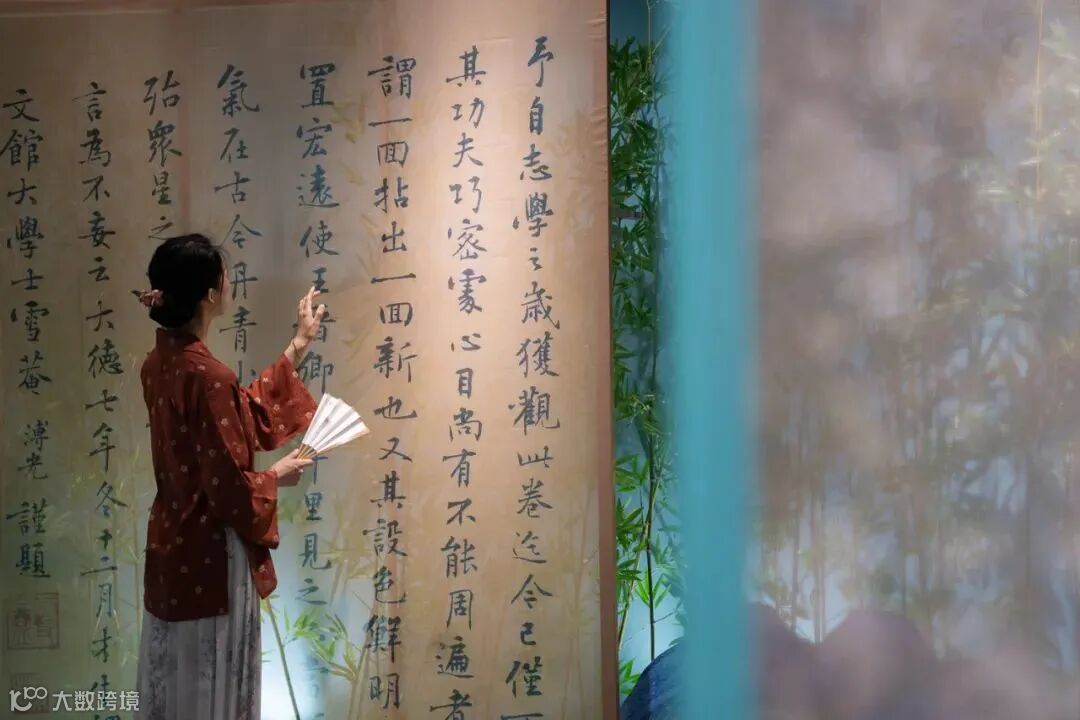 予自志學之歲獲觀此卷迄今已僅
其功夫巧密處心目尚有不能周遍者
謂一回拈出一回新也又其設色鮮明
置宏遠使王晉卿千里見之
氣在古今丹青小
殆眾星之
言為不妄云大德七年冬十二月才生
文館大學士雪菴溥光謹題
大数跨境